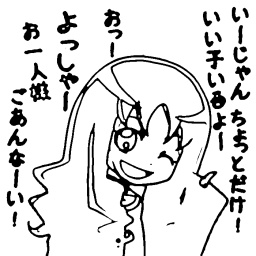 いーじゃんちょっとだけ！
いい子いるよー
おっー
よっしゃー
お一人様
ごあんなーい！